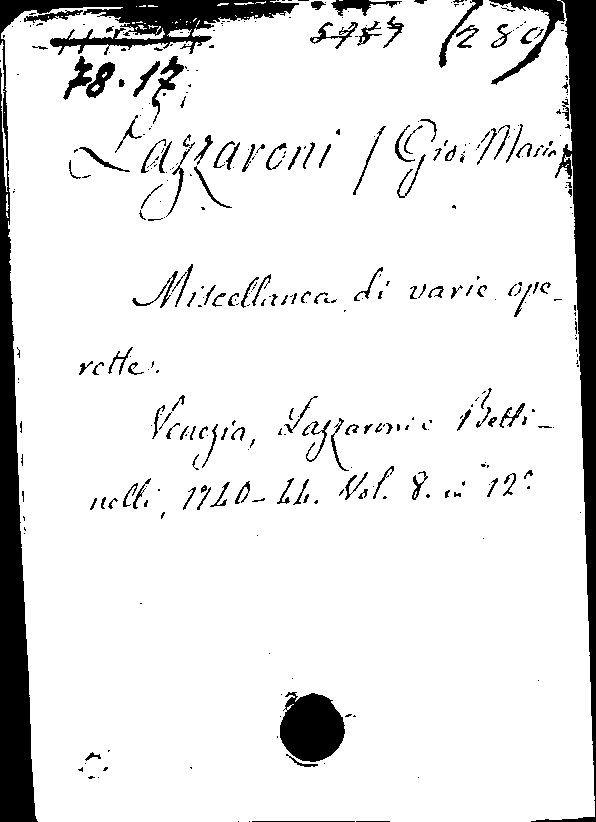 5787 (289)
78.17
Lazzaroni / Gio: Maria
Miscellanea di varie ope-
rette.
Venezia, Lazzaroni e Betti-
nelli, 1740-44. Vol. 8. in 12°